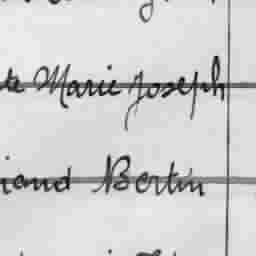 te Marie Joseph
iand Bertin